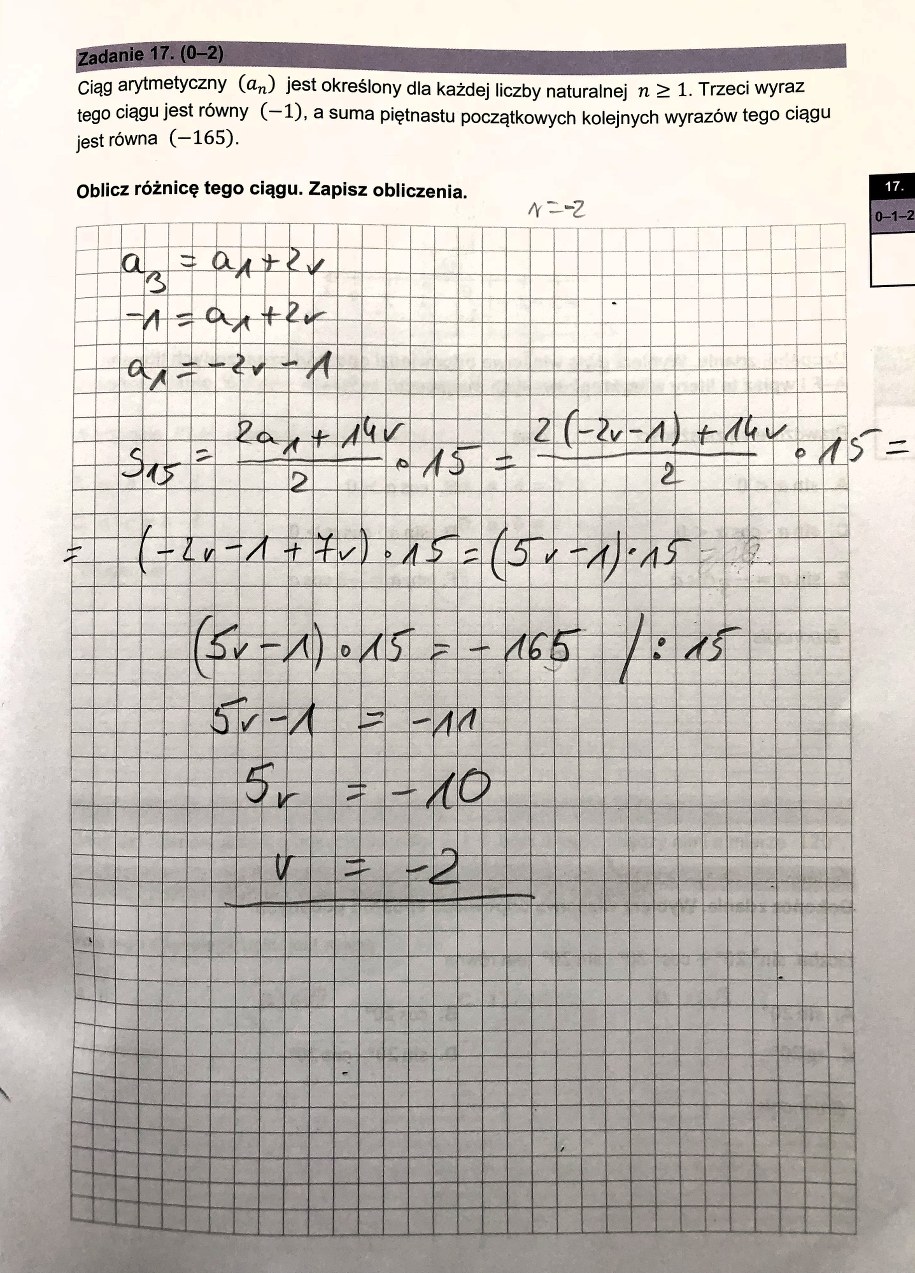 Zadanie 17. (0–2)
Ciąg arytmetyczny (aₙ) jest określony dla każdej liczby naturalnej n ≥ 1. Trzeci wyraz
tego ciągu jest równy (−1), a suma piętnastu początkowych kolejnych wyrazów tego ciągu
jest równa (−165).
Oblicz różnicę tego ciągu. Zapisz obliczenia.
17.
0–1–2
r = -2
a₃ = a₁ + 2r
-1 = a₁ + 2r
a₁ = -2r - 1
S₁₅ = (2a₁ + 14r)/2 · 15 = (2(-2r-1) + 14r)/2 · 15 =
= (-2r - 1 + 7r) · 15 = (5r - 1) · 15
(5r - 1) · 15 = -165 /: 15
5r - 1 = -11
5r = -10
r = -2